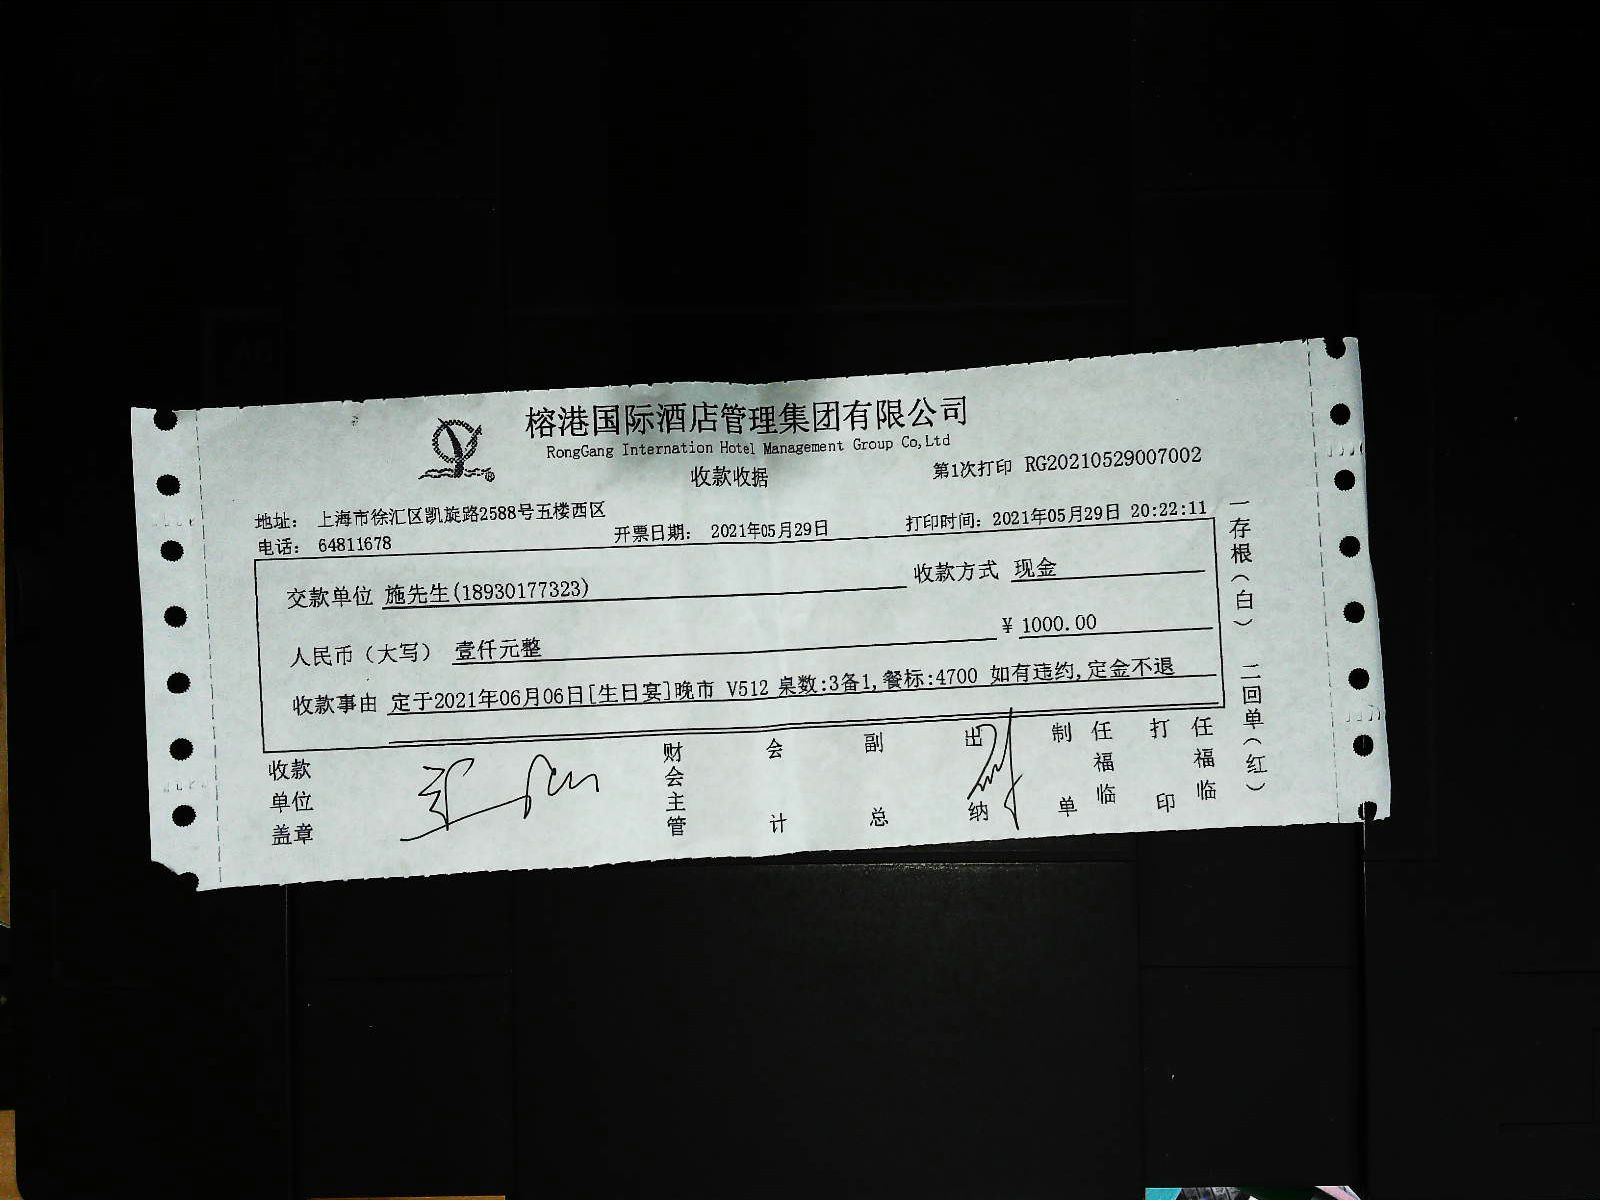 榕港国际酒店管理集团有限公司
RongGang Internation Hotel Management Group Co,Ltd
收款收据
第1次打印 RG20210529007002
地址: 上海市徐汇区凯旋路2588号五楼西区
电话: 64811678
开票日期: 2021年05月29日
打印时间: 2021年05月29日 20:22:11
交款单位 施先生(18930177323)
收款方式 现金
人民币（大写） 壹仟元整
¥ 1000.00
收款事由 定于2021年06月06日[生日宴]晚市 V512 桌数:3备1,餐标:4700 如有违约,定金不退
收款单位盖章
财会主管
会计
副总
出纳
制单 任福临
打印 任福临
一存根（白） 二回单（红）